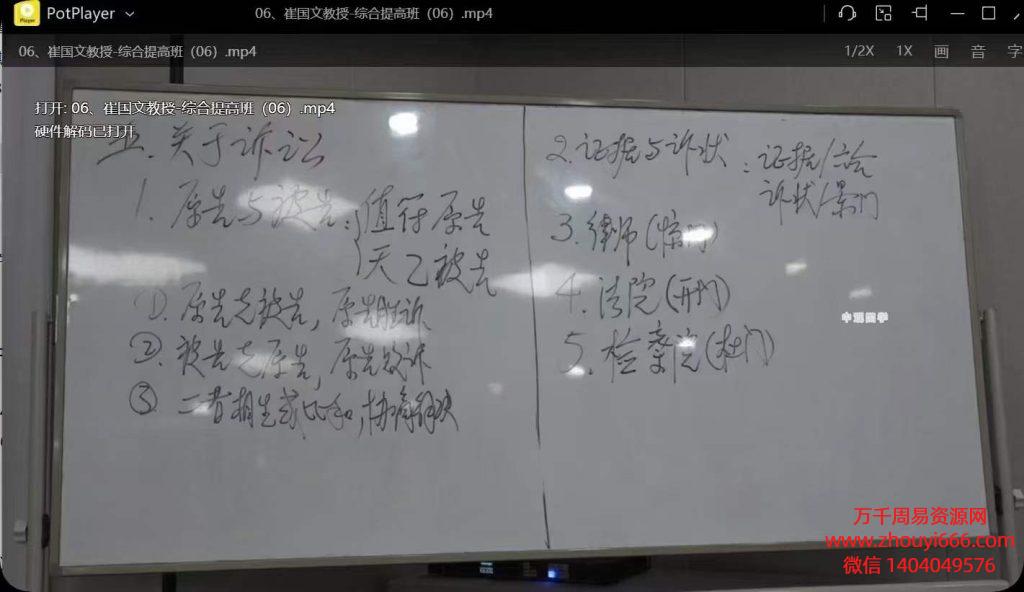 PotPlayer
06、崔国文教授-综合提高班（06）.mp4
06、崔国文教授-综合提高班（06）.mp4
1/2X 1X 画 音 字
打开: 06、崔国文教授-综合提高班（06）.mp4
硬件解码已打开
五.关于诉讼
1.原告与被告:{值符原告
天乙被告
①.原告克被告,原告胜诉
②.被告克原告,原告败诉
③二者相生或比和,协商解决
2.证据与诉状:证据/六合
诉状/景门
3.律师(惊门)
4.法院(开门)
5.检察院(杜门)
万千周易资源网
www.zhouyi666.com
微信 1404049576